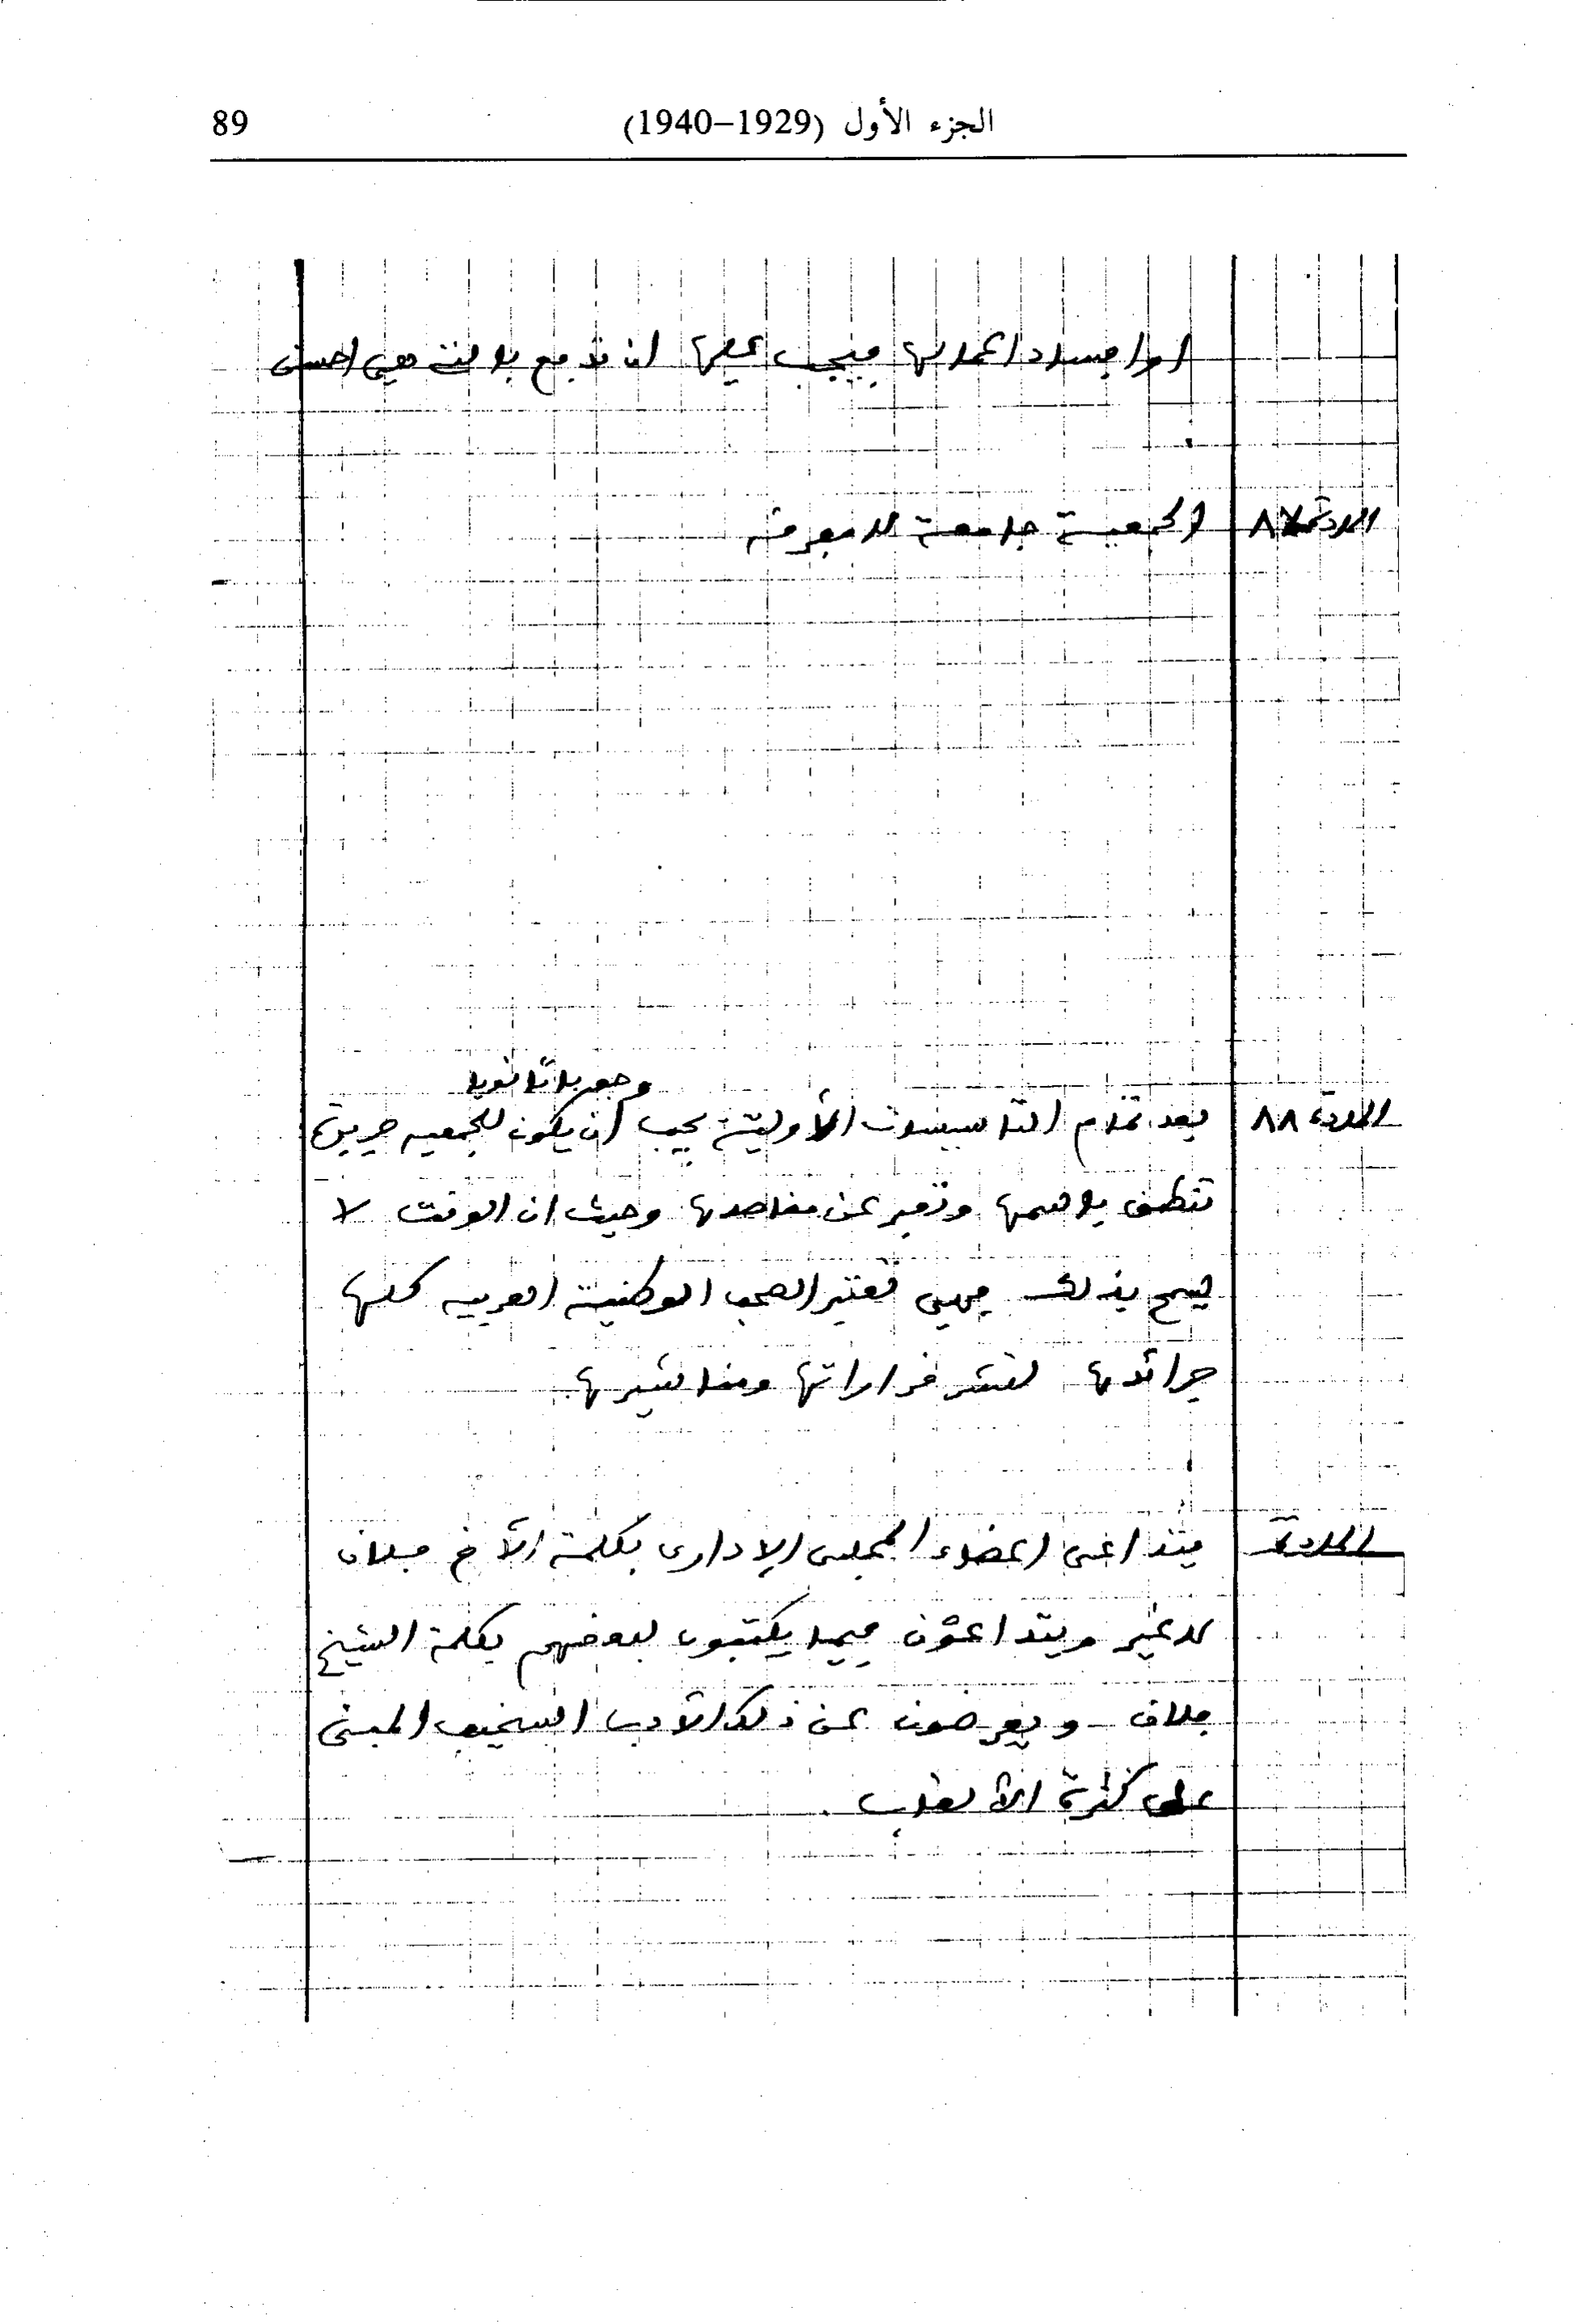 89
الجزء الأول (1929–1940)
او افساد اعمالها فيجب عليها ان تدفع بالتى هي احسن
المادة ٨٧ الجمعية جامعة لا مفرقه
وجوبا ثانويا
المادة ٨٨ بعد تمام التأسيسات الأولية يجب أن يكون للجمعيه جريدة
تنطق باسمها وتعبر عن مقاصدها وحيث ان الوقت لا
يسمح بذلك فهي تعتبر الصحف الوطنية العربيه كلها
جرائدها لنشر قراراتها ومناشيرها.
المادة يتداعى اعضاء المجلس الإدارى بكلمة الأخ فلان
لا غير ويتداعون فيما يكتبون لبعضهم بكلمة الشيخ
فلان ويعرضون عن ذلك الأدب السخيف المبنى
على كثرة الألقاب.